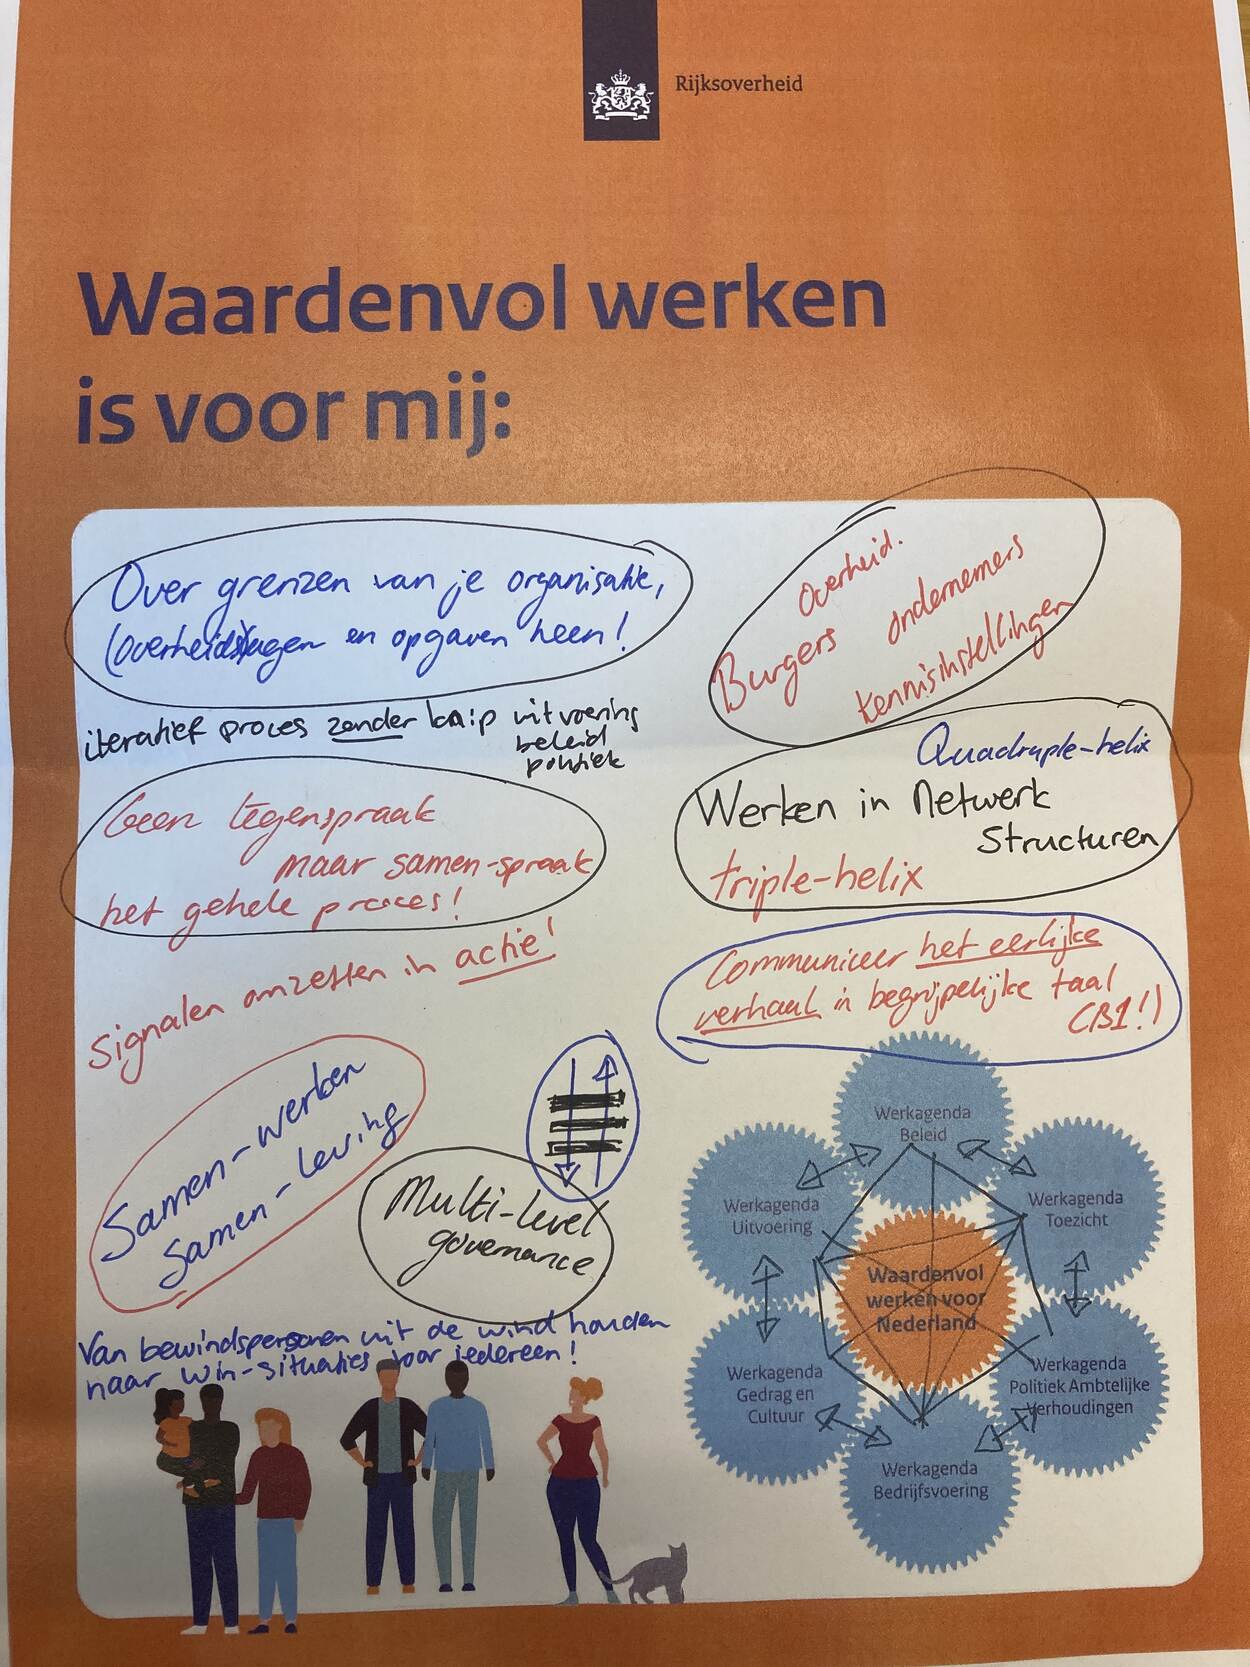 Rijksoverheid
Waardenvol werken
is voor mij:
Over grenzen van je organisatie,
(overheids)lagen en opgaven heen!
iteratief proces zonder knip uitvoering
beleid
politiek
Geen tegenspraak
maar samen-spraak
het gehele proces!
Signalen omzetten in actie!
Samen-werken
Samen-leving
Multi-level
governance
Van bewindspersonen uit de wind houden
naar win-situaties voor iedereen!
Overheid.
Burgers ondernemers
kennisinstellingen
Quadruple-helix
Werken in Netwerk
Structuren
triple-helix
Communiceer het eerlijke
verhaal in begrijpelijke taal
(B1!)
Werkagenda
Beleid
Werkagenda
Uitvoering
Werkagenda
Toezicht
Waardenvol
werken voor
Nederland
Werkagenda
Gedrag en
Cultuur
Werkagenda
Politiek Ambtelijke
Verhoudingen
Werkagenda
Bedrijfsvoering